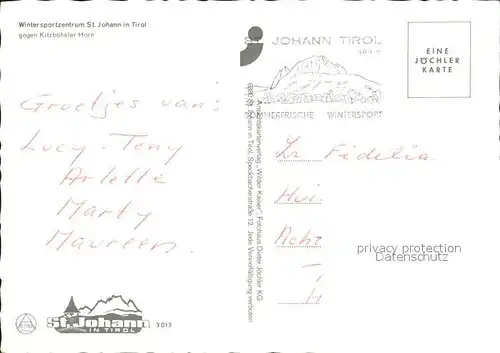 Wintersportzentrum St. Johann in Tirol
gegen Kitzbüheler Horn
Groetjes van:
Lucy - Tony
Arlette
Marty
Maureen.
St. Johann
IN TIROL
3013
ST. JOHANN TIROL
SOMMERFRISCHE WINTERSPORT
Ansichtskartenverlag „Wilder Kaiser“, Fotohaus Dieter Jöchler KG
6380 St. Johann in Tirol, Speckbacherstraße 12. Jede Vervielfältigung verboten
EINE
JÖCHLER
KARTE
Zr Fidelia
Hui
Acht
privacy protection
Datenschutz
H